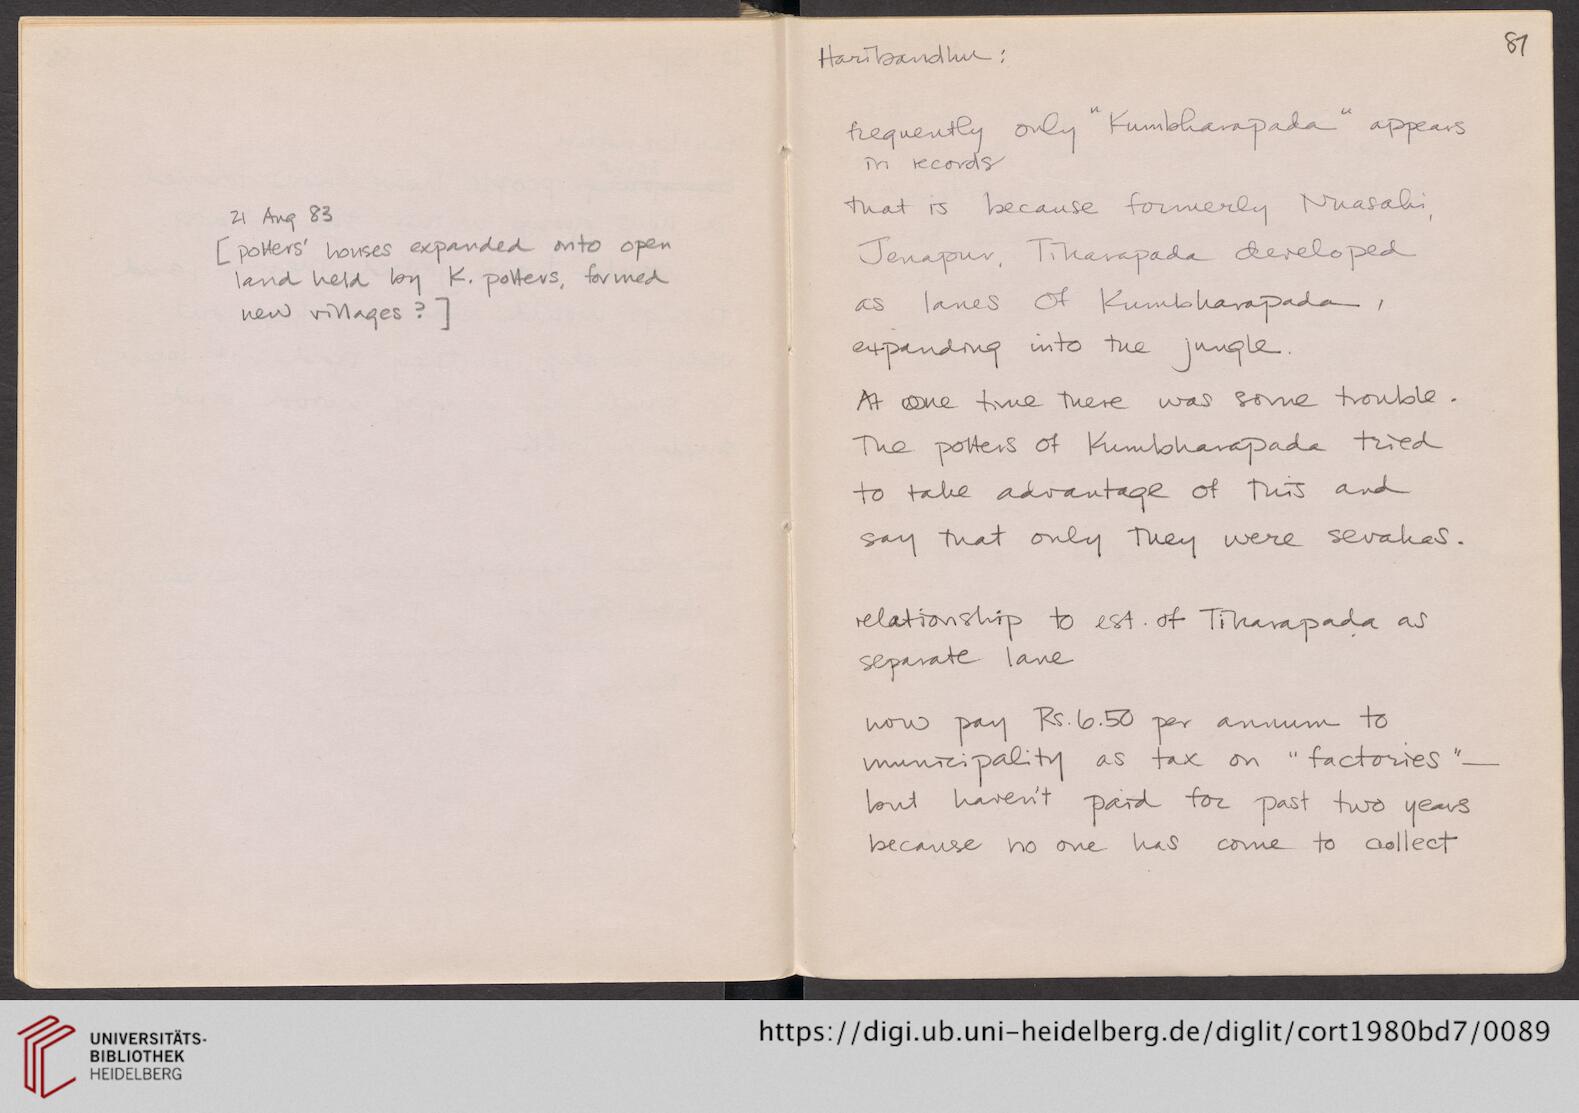 21 Aug 83
[potters' houses expanded onto open
land held by K. potters, formed
new villages?]
87
Haribandhu:
frequently only "Kumbharapada" appears
in records
that is because formerly Nuasahi,
Jenapur, Tikarapada developed
as lanes of Kumbharapada,
expanding into the jungle.
At one time there was some trouble.
The potters of Kumbharapada tried
to take advantage of this and
say that only they were sevakas.
relationship to est. of Tikarapada as
separate lane
now pay Rs. 6.50 per annum to
municipality as tax on "factories" —
but haven't paid for past two years
because no one has come to collect
UNIVERSITÄTS-
BIBLIOTHEK
HEIDELBERG
https://digi.ub.uni-heidelberg.de/diglit/cort1980bd7/0089